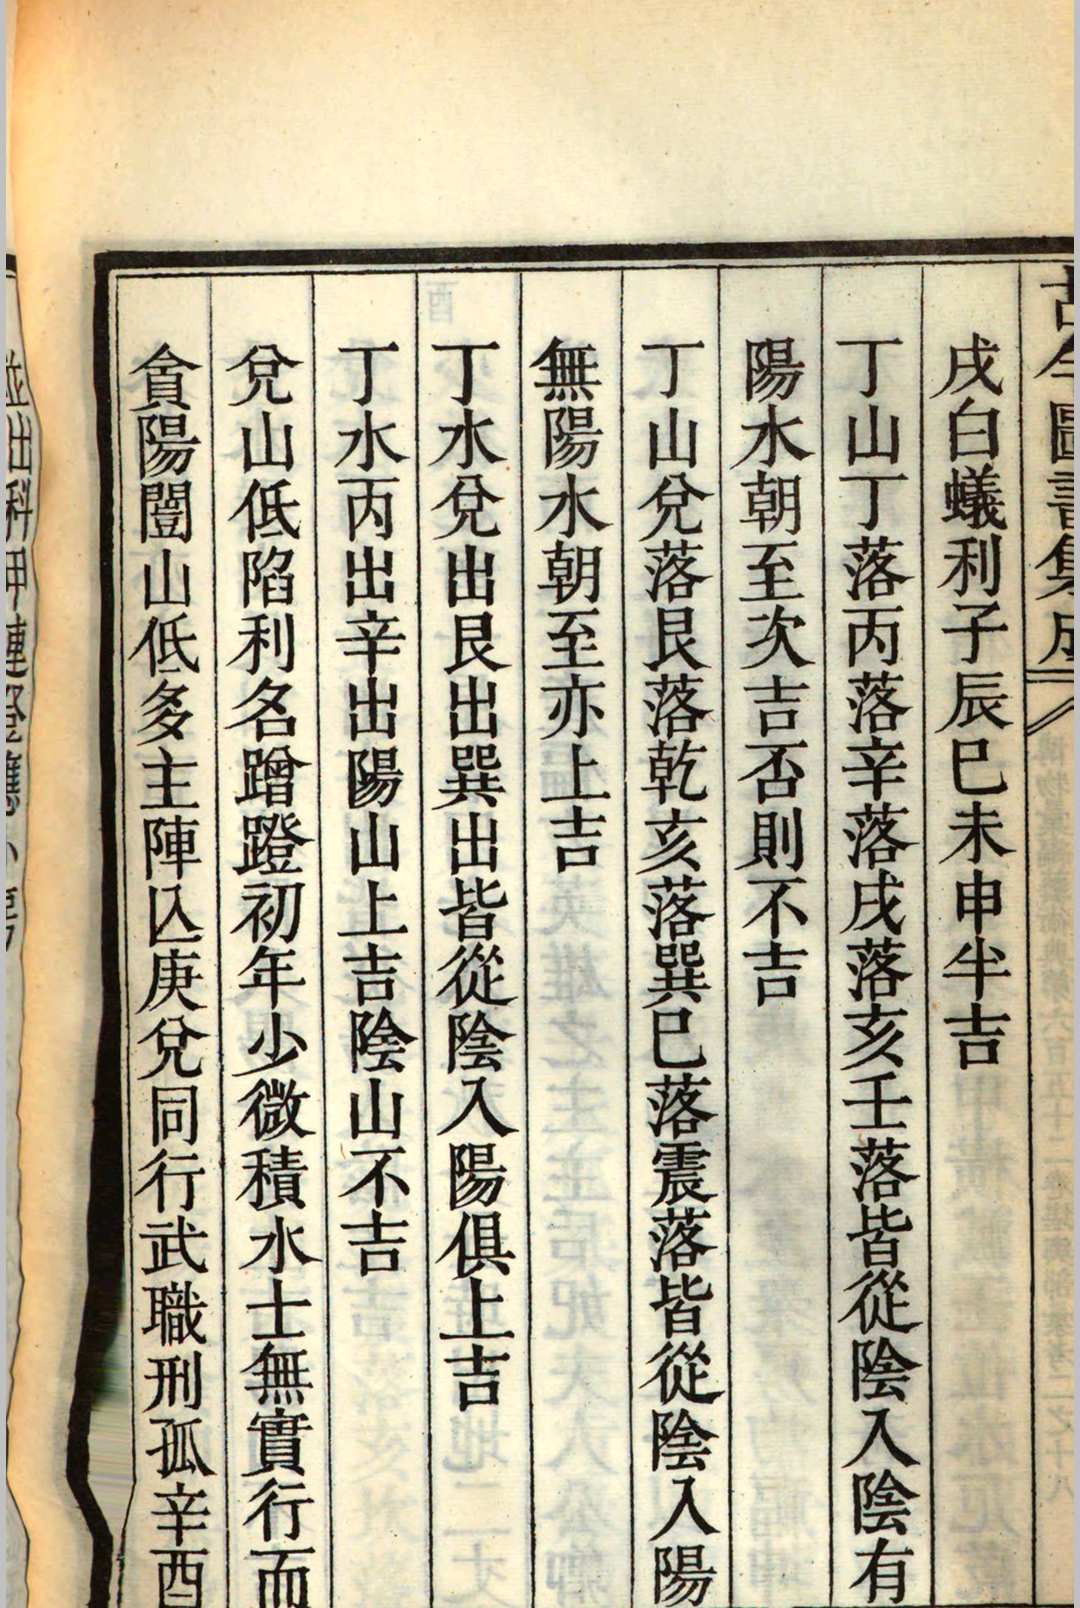 古今圖書集成
戌白蟻利子辰巳未申半吉
丁山丁落丙落辛落戌落亥壬落皆從陰入陰有
陽水朝至次吉否則不吉
丁山兌落艮落乾亥落巽巳落震落皆從陰入陽
無陽水朝至亦上吉
丁水兌出艮出巽出皆從陰入陽俱上吉
丁水丙出辛出陽山上吉陰山不吉
兌山低陷利名蹭蹬初年少微積水士無實行而
貪陽闓山低多主陣亾庚兌同行武職刑孤辛酉